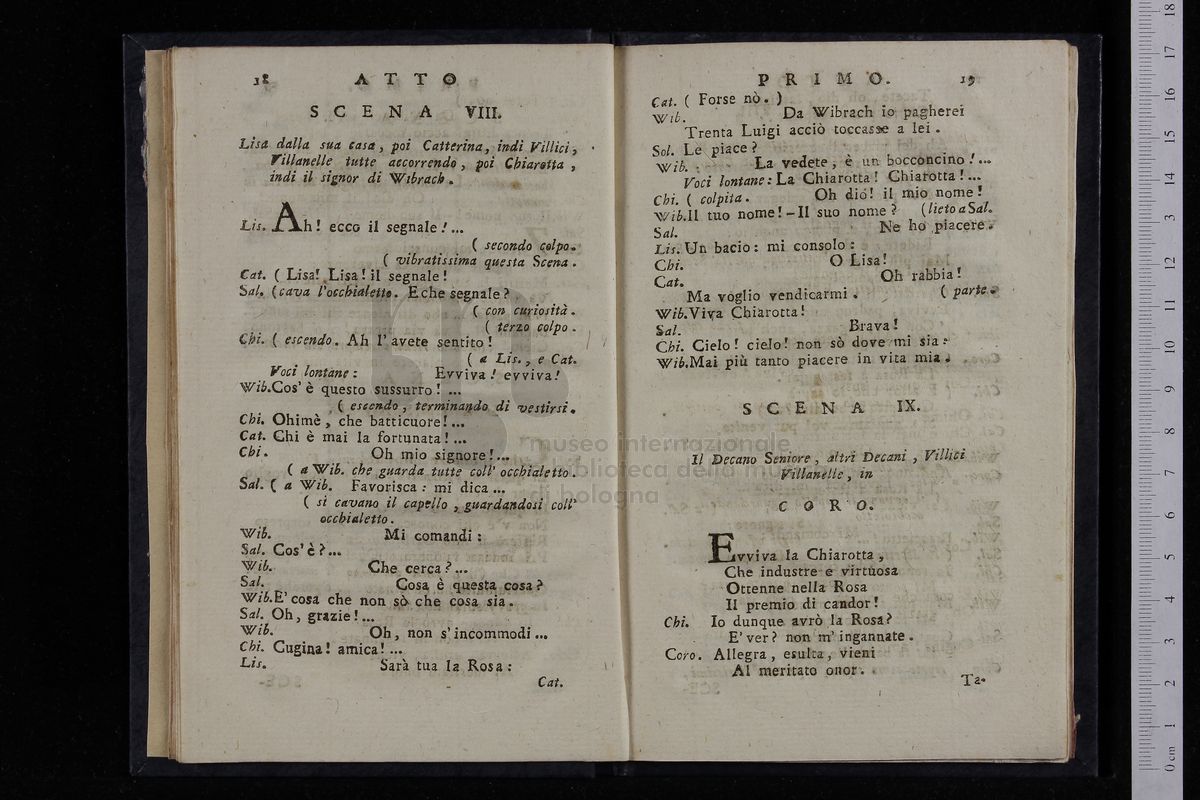 18 ATTO
SCENA VIII.
Lisa dalla sua casa, poi Catterina, indi Villici,
Villanelle tutte accorrendo, poi Chiarotta,
indi il signor di Wibrach.
Lis. Ah! ecco il segnale!...
( secondo colpo.
( vibratissima questa Scena.
Cat. ( Lisa! Lisa! il segnale!
Sal. (cava l'occhialetto. E che segnale?
( con curiosità.
( terzo colpo.
Chi. ( escendo. Ah l'avete sentito!
( a Lis., e Cat.
Voci lontane: Evviva! evviva!
Wib.Cos'è questo sussurro! ...
( escendo, terminando di vestirsi.
Chi. Ohimè, che batticuore!...
Cat. Chi è mai la fortunata!...
Chi. Oh mio signore!...
( a Wib. che guarda tutte coll' occhialetto.
Sal. ( a Wib. Favorisca: mi dica...
( si cavano il capello, guardandosi coll'
occhialetto.
Wib. Mi comandi:
Sal. Cos'è?...
Wib. Che cerca?...
Sal. Cosa è questa cosa?
Wib.E' cosa che non sò che cosa sia.
Sal. Oh, grazie!...
Wib. Oh, non s'incommodi...
Chi. Cugina! amica!...
Lis. Sarà tua la Rosa:
Cat.
PRIMO. 19
Cat. ( Forse nò. )
Wib. Da Wibrach io pagherei
Trenta Luigi acciò toccasse a lei.
Sal. Le piace?
Wib. La vedete, è un bocconcino!...
Voci lontane: La Chiarotta! Chiarotta!...
Chi. ( colpita. Oh dio! il mio nome!
Wib.Il tuo nome!-Il suo nome? (lieto a Sal.
Sal. Ne ho piacere.
Lis. Un bacio: mi consolo:
Chi. O Lisa!
Cat. Oh rabbia!
Ma voglio vendicarmi. ( parte.
Wib.Viva Chiarotta!
Sal. Brava!
Chi. Cielo! cielo! non sò dove mi sia:
Wib.Mai più tanto piacere in vita mia.
SCENA IX.
Il Decano Seniore, altri Decani, Villici
Villanelle, in
CORO.
Evviva la Chiarotta,
Che industre e virtuosa
Ottenne nella Rosa
Il premio di candor!
Chi. Io dunque avrò la Rosa?
E' ver? non m'ingannate.
Coro. Allegra, esulta, vieni
Al meritato onor.
Ta-
museo internazionale
biblioteca della musica
di bologna
0 cm 1 2 3 4 5 6 7 8 9 10 11 12 13 14 15 16 17 18